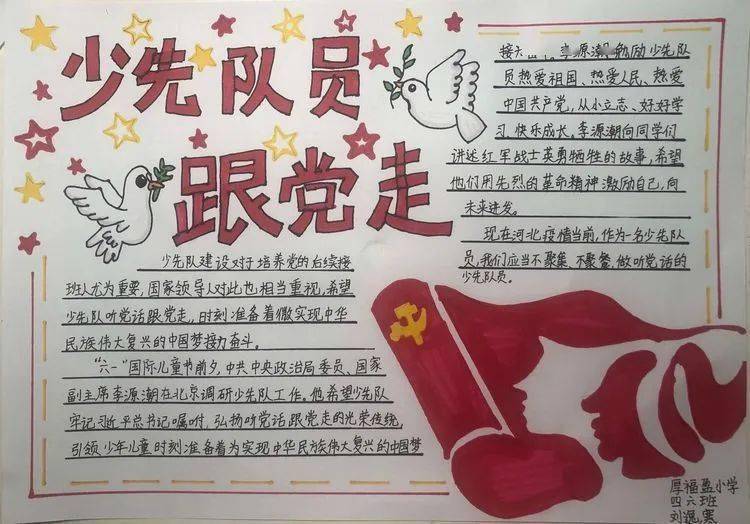 少先队员
跟党走
少先队建设对于培养党的后续接
班人尤为重要，国家领导人对此也相当重视，希望
少先队听党话跟党走，时刻准备着儌实现中华
民族伟大复兴的中国梦接力奋斗。
“六一”国际儿童节前夕，中共中央政治局委员、国家
副主席李源潮在北京调研少先队工作。他希望少先队
牢记习近平总书记嘱咐，弘扬听党话跟党走的光荣传统，
引领少年儿童时刻准备着为实现中华民族伟大复兴的中国梦
接 李源潮勉励少先队
员热爱祖国、热爱人民、热爱
中国共产党，从小立志、好好学
习、快乐成长，李源潮向同学们
讲述红军战士英勇牺牲的故事，希望
他们用先烈的革命精神激励自己，向
未来进发。
现在河北疫情当前，作为一名少先队
员，我们应当不聚集、不聚餐、做听党话的
少先队员。
厚福盈小学
四六班
刘逸寒